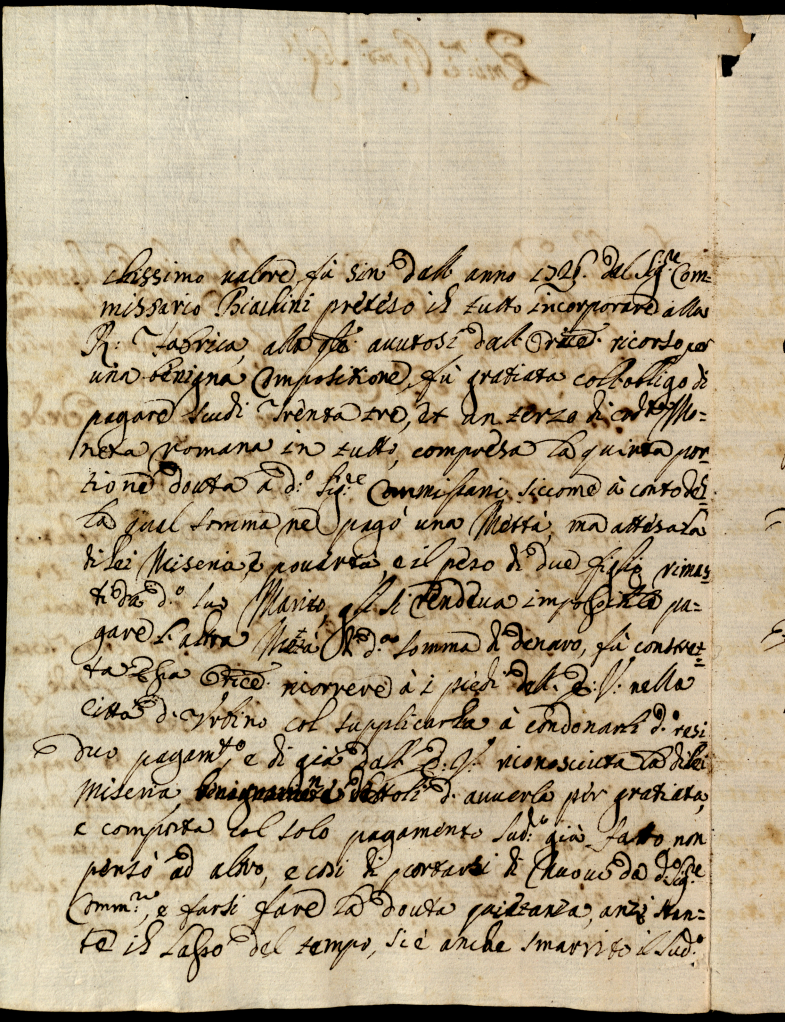 chissimo valore, fù sin dall' anno 1725. dal Sig.re Com=
missario Biachini preteso il tutto incorporare alla
R: Fabrica, alla qle. avutosi dall' Oratce. ricorso per
una benigna Compositione, fù gratiata coll'obligo di
pagare Scudi Trenta tre, et un terzo di Mo=
neta romana in tutto, compresa la quinta por=
tione douta a d.o Sig.re Commissario, siccome à conto del=
la qual somma ne pagò una Mettà, ma attesa la
di lei Miseria, e povertà, e il peso di due figlie rimas=
ti da d.o suo Marito, gl. si rendeva impossibile pa=
gare l'altra Mettà di d.a somma di denaro, fù constret=
ta Essa Otice. ricorrere à i piedi dell' E: V: nella
città d'Urbino col supplicarla à condonarli d.o resi
duo pagam.to, e di già dall' E: V: riconosciuta la di lei
miseria, d'averla per gratiata,
e composta col solo pagamento sud.o già fatto, non
pensò ad altro, e così di portarsi di Nuovo da d.o Sig.re
Comm.rio, e farsi fare la douta quietanza, anzi stan=
te il lasso del tempo, si è anche smarrito il sud.o